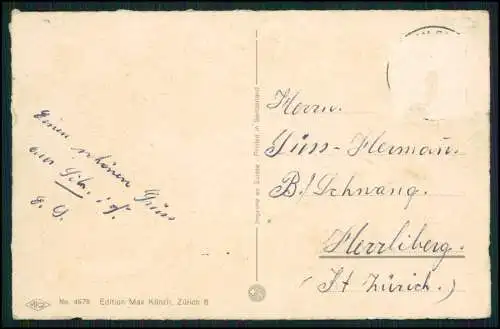 Einen schönen Gruss
aus
E. S.
Herrn.
Süss-Hermann.
B./Schwang.
Herrliberg.
Kt Zürich.
Imprimé en Suisse - Printed in Switzerland
No. 4678 Edition Max Künzli, Zürich 6